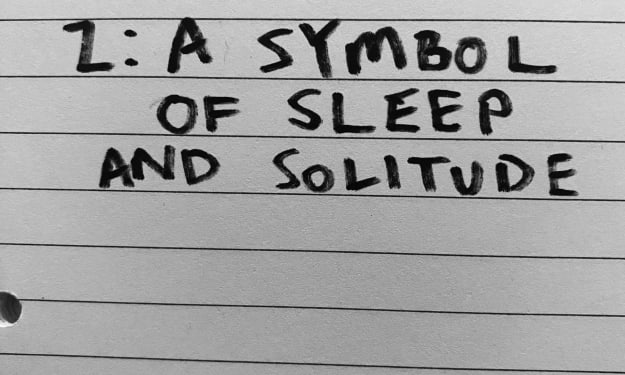 Z: A SYMBOL
OF SLEEP
AND SOLITUDE